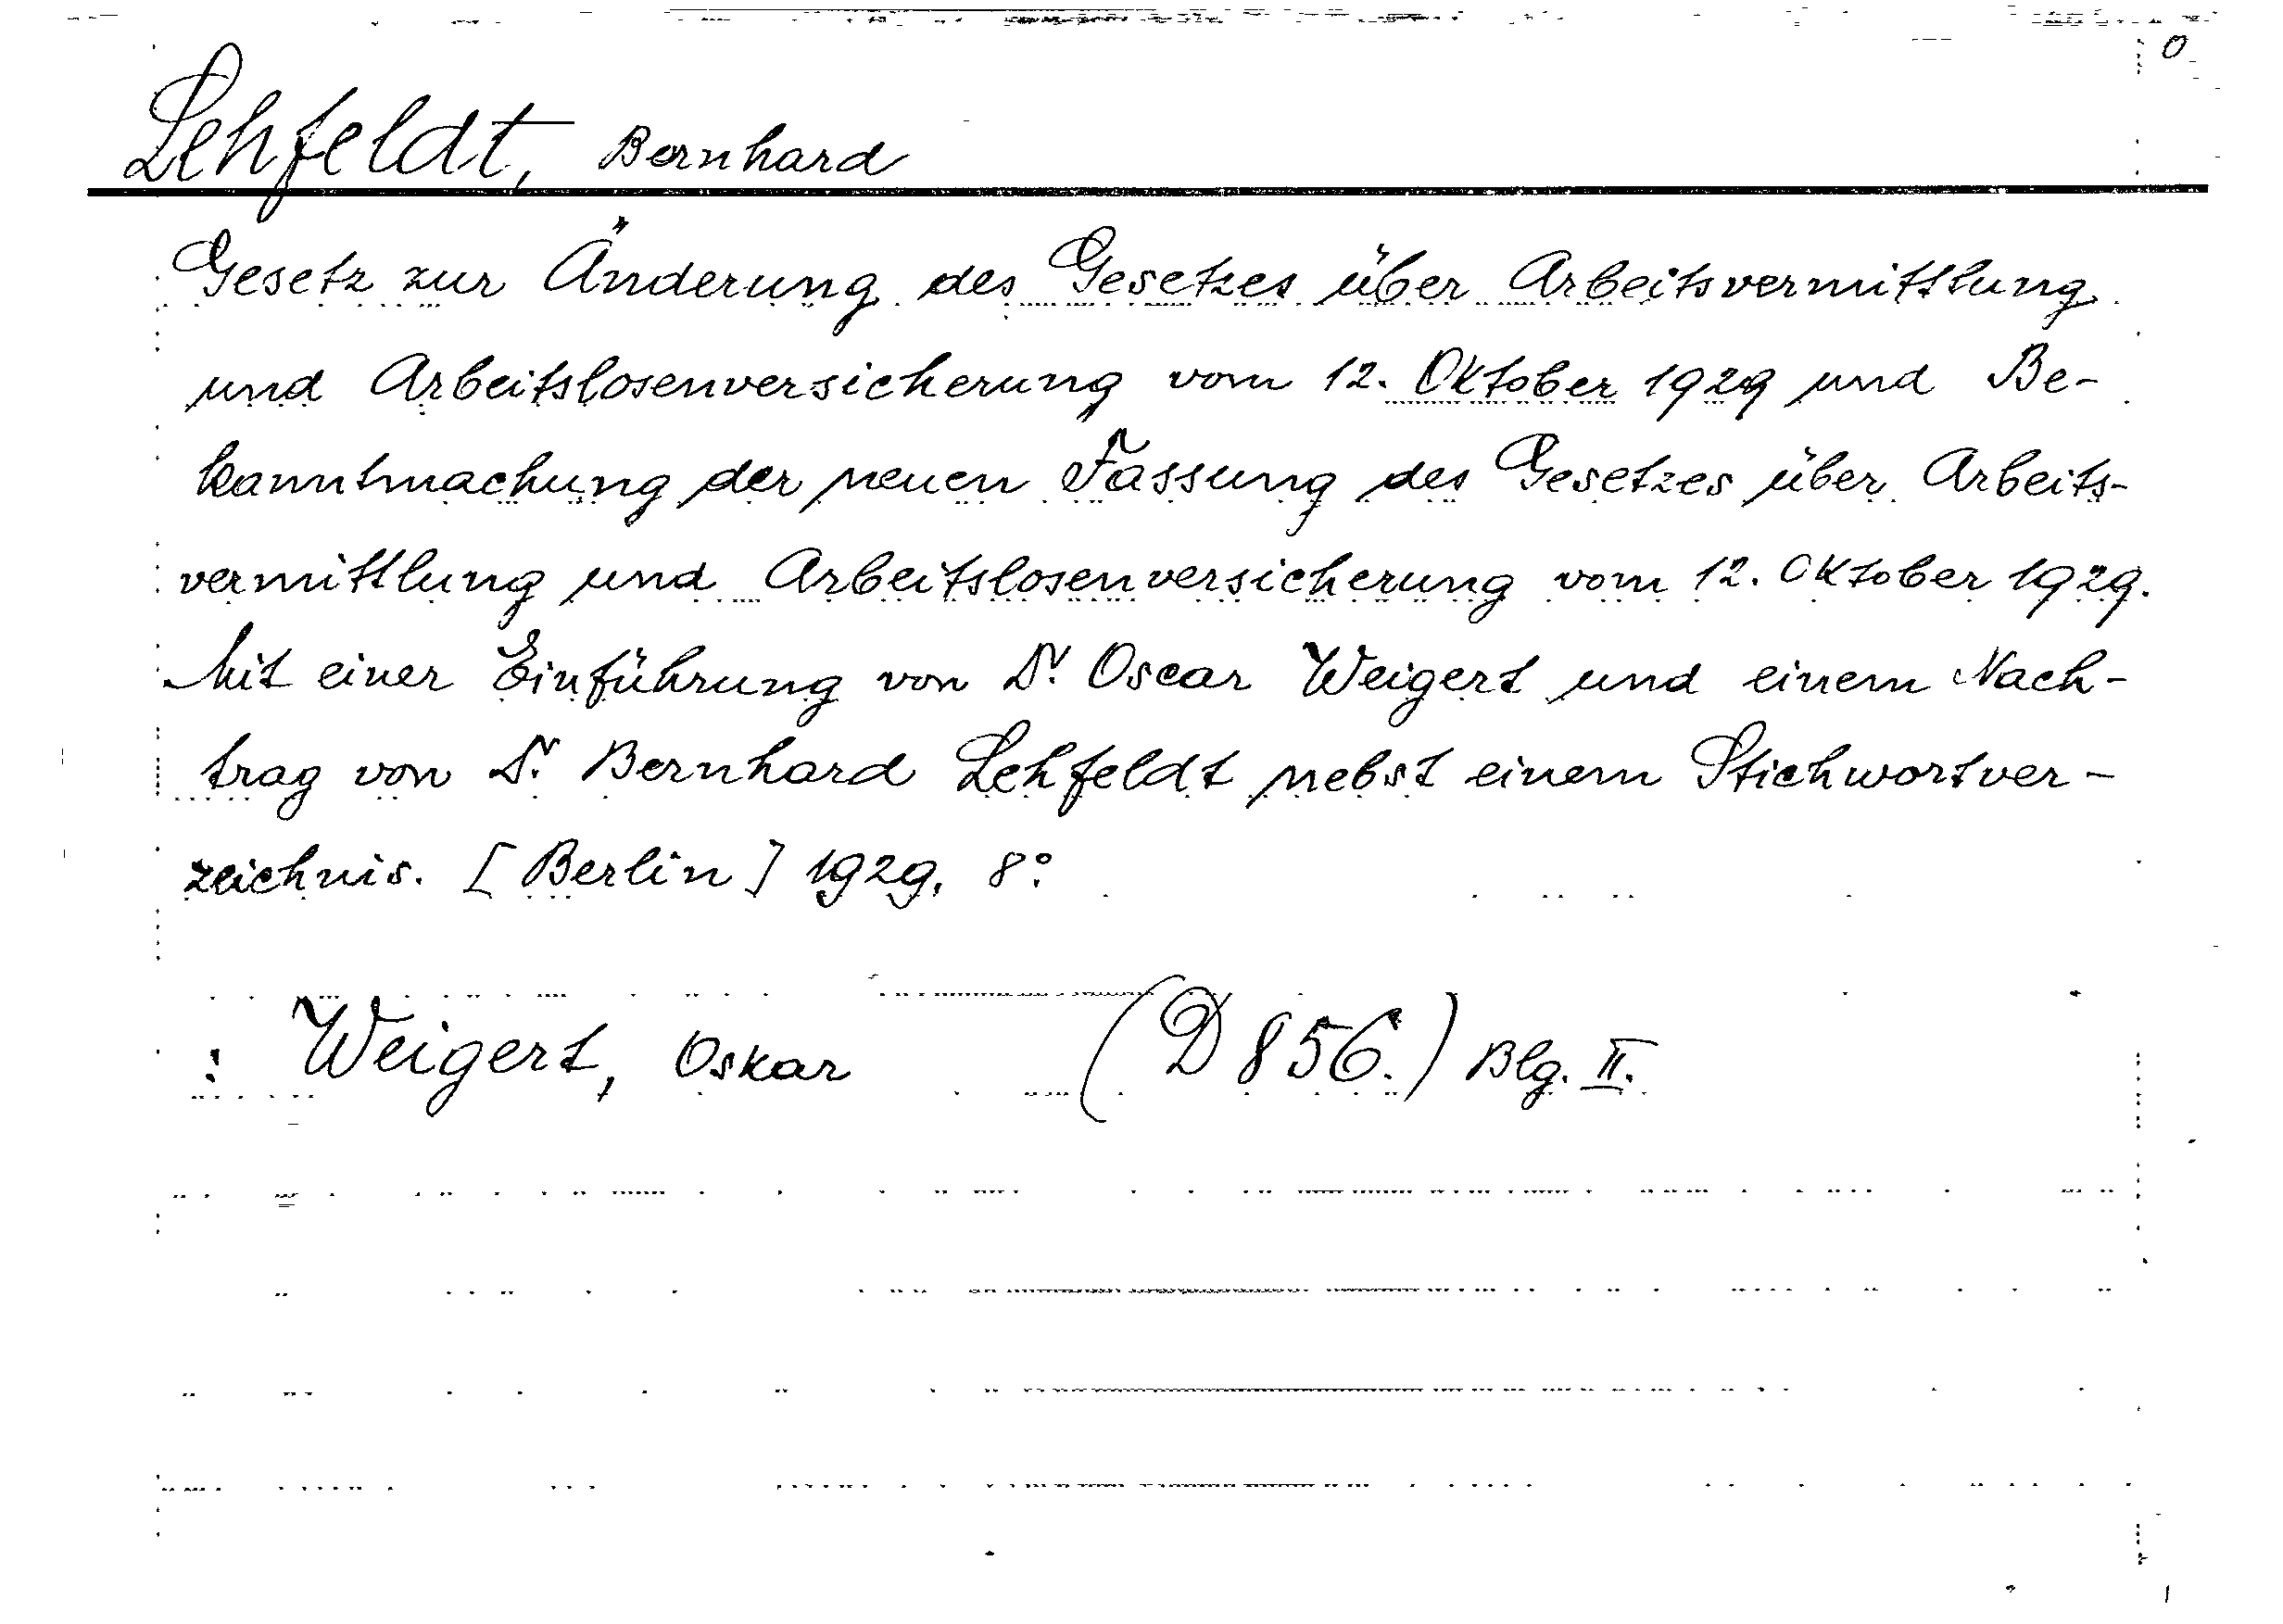 Lehfeldt, Bernhard
Gesetz zur Änderung des Gesetzes über Arbeitsvermittlung
und Arbeitslosenversicherung vom 12. Oktober 1929 und Be-
kanntmachung der neuen Fassung des Gesetzes über Arbeits-
vermittlung und Arbeitslosenversicherung vom 12. Oktober 1929.
Mit einer Einführung von Dr. Oscar Weigert und einem Nach-
trag von Dr. Bernhard Lehfeldt nebst einem Stichwortver-
zeichnis. [Berlin] 1929. 8°.
: Weigert, Oskar (D 856.) Blg. II.